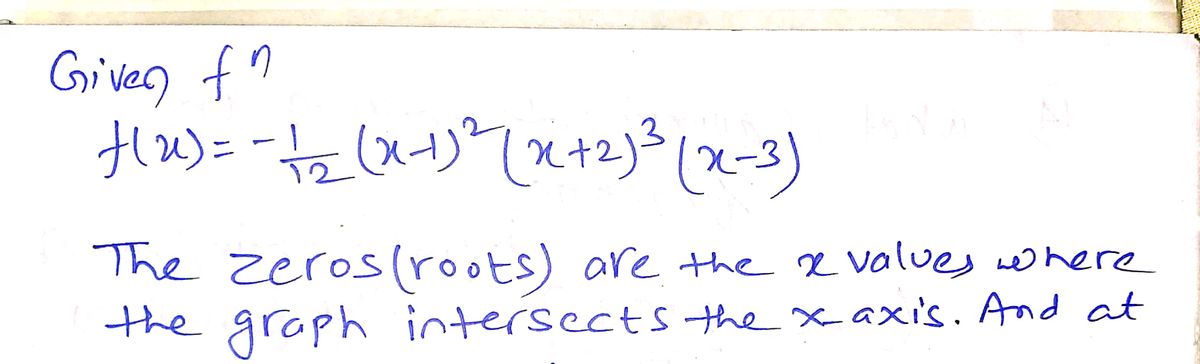 Given fⁿ
f(x)= -1/12 (x-1)²(x+2)³(x-3)
The zeros(roots) are the x values where
the graph intersects the x axis. And at